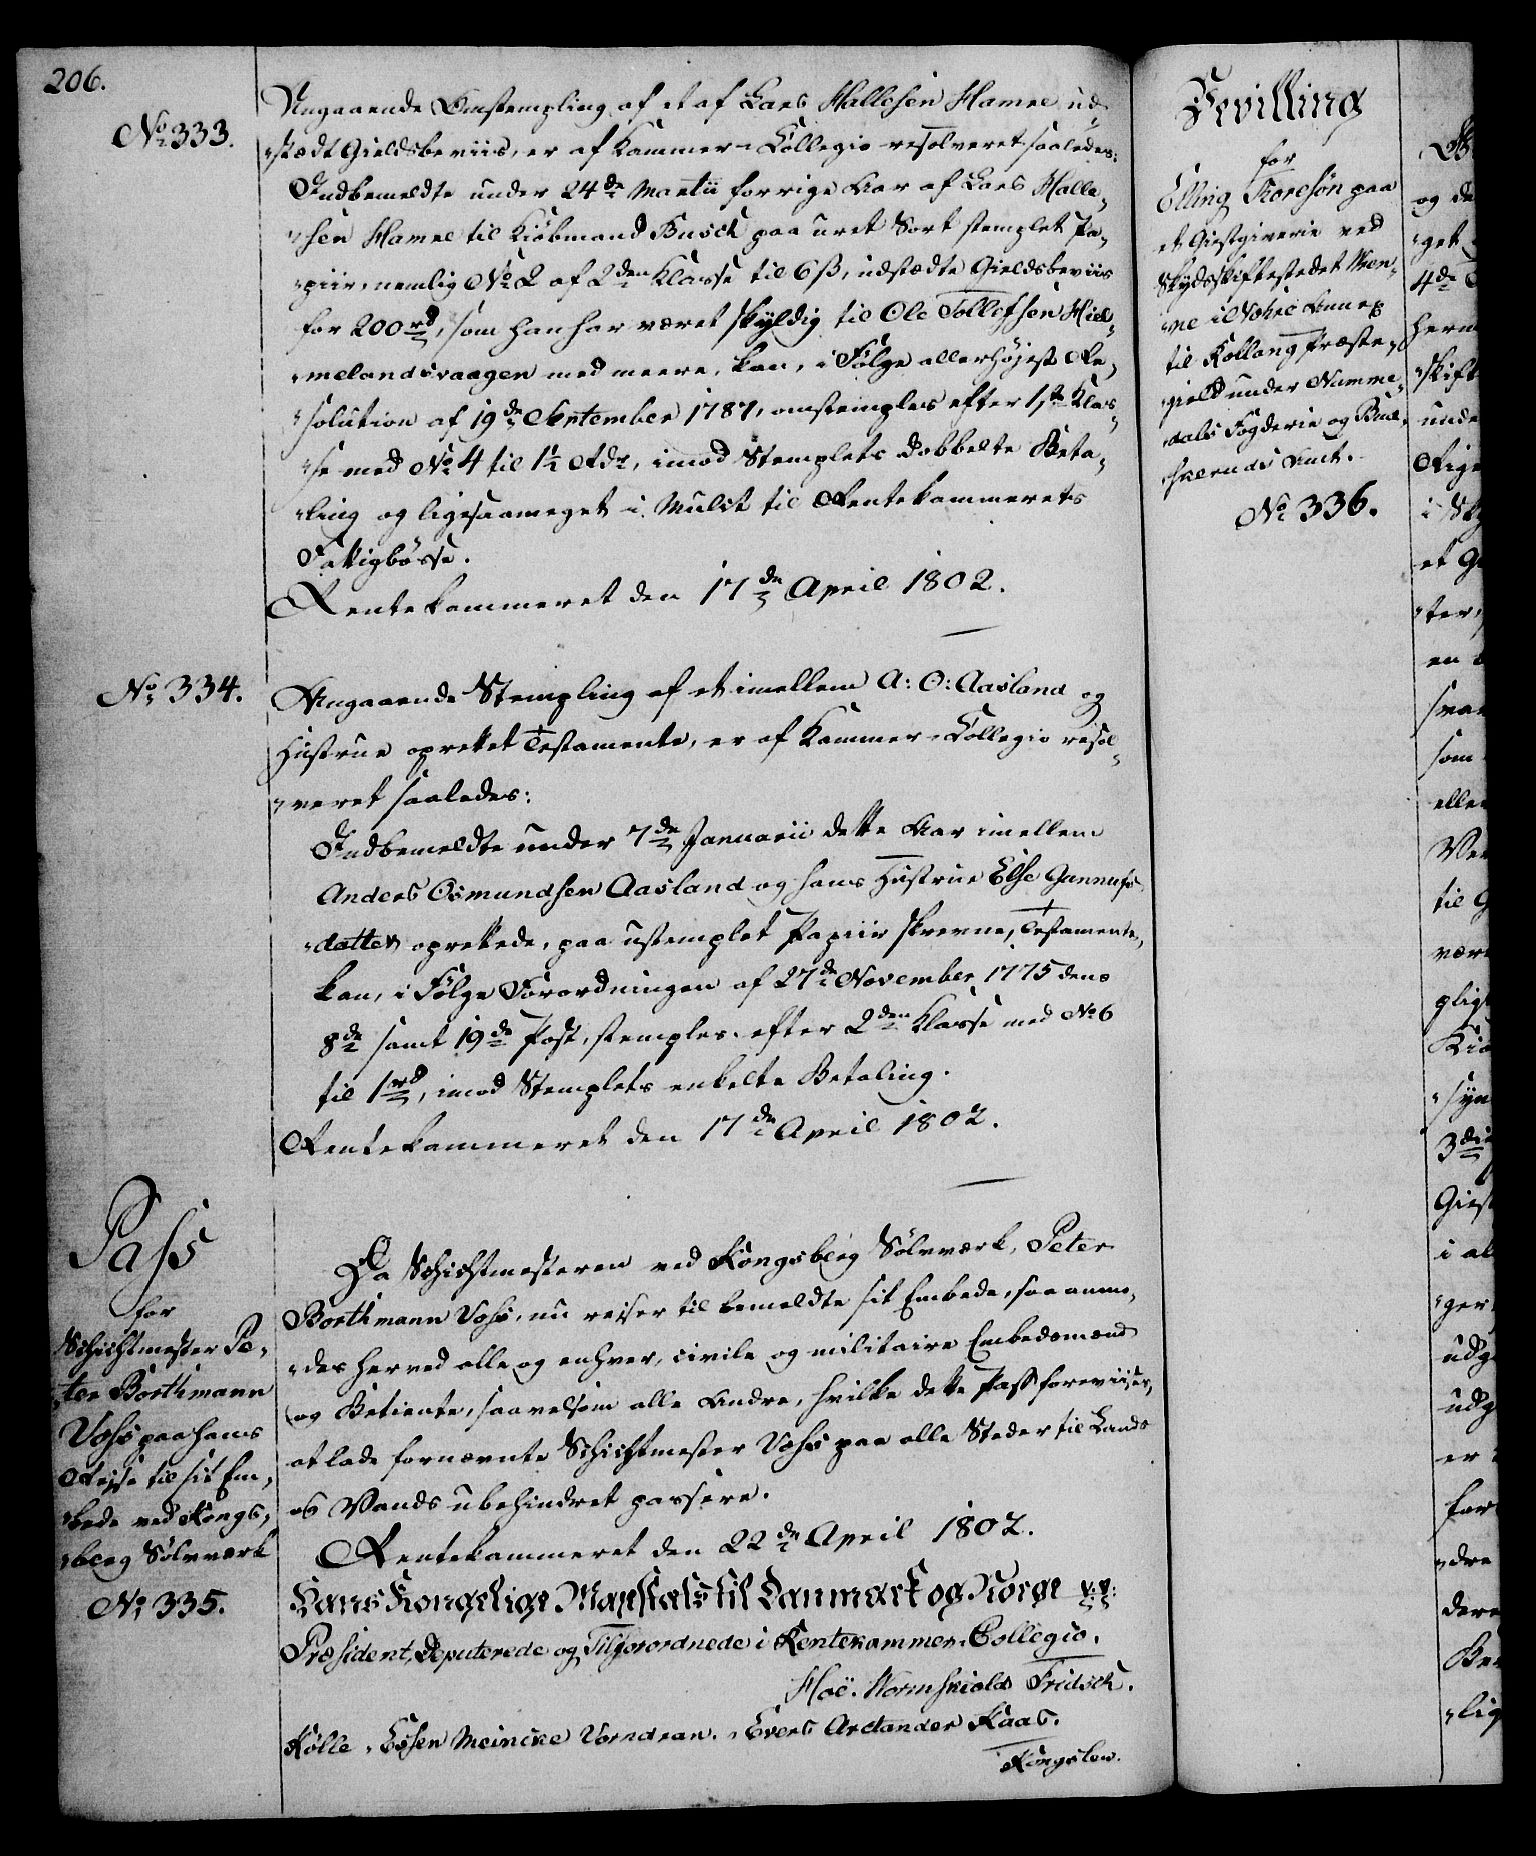 206.
No 333.
Angaaende Omstempling af et af Lars Hallesen Hamre ud„
„stædt Gieldsbeviis, er af Kammer-Collegio resolveret saaledes:
Indbemeldte under 24de Martii forrige Aar af Lars Halle„
„sen Hamre til Kiøbmand Busch paa uret Sort stemplet Pa„
„piir, nemlig No 2 af 2den Klasse til 6 ß, udstædte Gieldsbeviis
for 200 rd, som han har været skyldig til Ole Tollefsen Hiel„
„melandsvaagen med meere, kan, i Følge allerhøjest Re„
„solution af 19de September 1787, omstemples efter 1ste Klas„
„se med No 4 til 1½ Rdr, imod Stemplets dobbelte Beta„
„ling og ligesaameget i Mulct til Rentekammerets
Fattigbøsse.
Rentekammeret den 17de April 1802.
No 334.
Angaaende Stempling af et imellem A: O: Aasland og
Hustrue oprettet Testamente, er af Kammer-Collegio resol„
„veret saaledes:
Indbemeldte under 7de Januarii dette Aar imellem
Anders Osmundsen Aasland og hans Hustrue Else Gunnufs„
„datter oprettede, paa ustemplet Papiir skrevne, Testamente,
kan, i Følge Forordningen af 27de November 1775 dens
8de samt 19de Post, stemples efter 2den Klasse med No 6
til 1 rd, imod Stemplets enkelte Betaling.
Rentekammeret den 17de April 1802.
Pass
for
Schichtmester Pe„
„ter Borthmann
Voss paa hans
Rejse til sit Em„
„bede ved Kongs„
„berg Sølvværk
No 335.
Da Schichtmesteren ved Kongsberg Sølvværk, Peter
Borthmann Voss, nu reiser til bemeldte sit Embede, saa anmo„
„des herved alle og enhver, civile og militaire Embedsmænd
og Betiente, saavelsom alle Andre, hvilke dette Pass foreviises,
at lade fornævnte Schichtmester Voss paa alle Steder til Lands
og Vands ubehindret passere.
Rentekammeret den 22de April 1802.
Hans Kongelige Majestæts til Danmark og Norge v: v:
Præsident, Deputerede og Tilforordnede i Rentekammer-Collegio.
Hoë. Wormskiold Fridsch.
Kølle. Essen Meincke Vorndran. Evers Arctander Kaas.
Kongslew.
Bevilling
for
Elling Toresøn paa
et Giestgiverie ved
Skydsskiftestedet Men„
„ne i Nohre Annex
til Rollaug Præste„
„gield under Numme„
„dals Fogderie og Bud„
„skeruds Amt.
No 336.
og de
„get
4de
herm
„skift
unde
Rige
i
et Gi
„ter,
en
svar
som
elle
til G
vær
„syn
3die
Gies
i al
„ger
udg
udg
er
for
„dre
dere
„lig